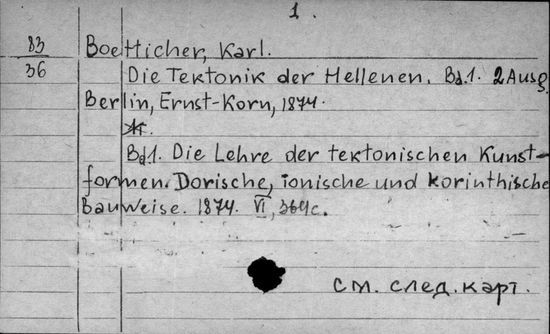 1.
83
36
Boetticher, Karl.
Die Tektonik der Hellenen. Bd.1. 2 Ausg.
Berlin, Ernst-Korn, 1874.
Bd1. Die Lehre der tektonischen Kunst-
formen. Dorische, ionische und korinthische
Bauweise. 1874. VI, 364c.
см. след. карт.